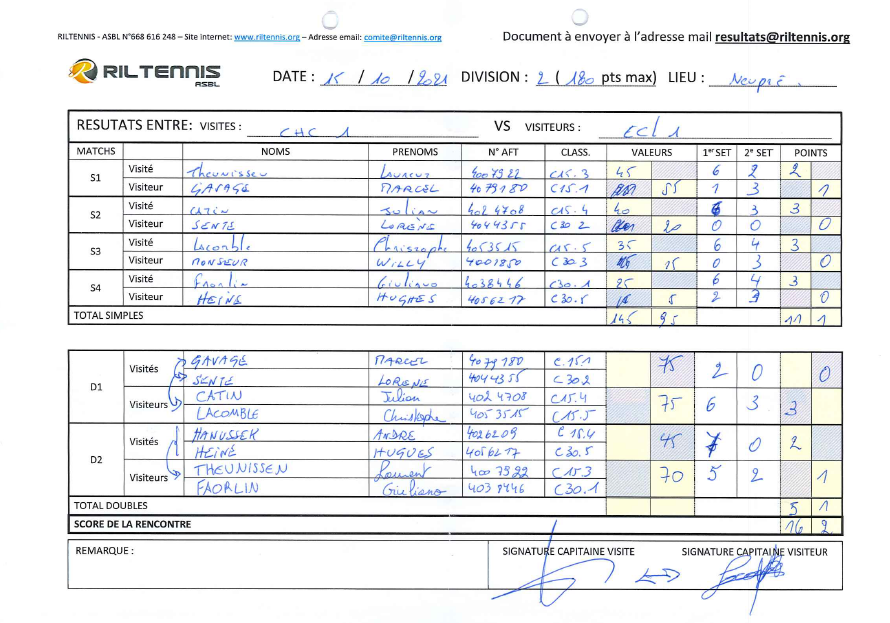 RILTENNIS - ASBL N°668 616 248 – Site Internet: www.riltennis.org – Adresse email: comite@riltennis.org
Document à envoyer à l'adresse mail resultats@riltennis.org
RILTENNIS ASBL
DATE : 15 / 10 / 2021 DIVISION : 2 ( 180 pts max) LIEU : Neupré
RESUTATS ENTRE: VISITES : CHC 1 VS VISITEURS : ECl 1
MATCHS NOMS PRENOMS N° AFT CLASS. VALEURS 1er SET 2e SET POINTS
S1 Visité Theunissen Laurent 4007922 C15.3 45 6 2 2
Visiteur GAVAGE MARCEL 4079180 C15.1 55 1 3 1
S2 Visité CATIN Julian 4024708 C15.4 40 6 3 3
Visiteur SENTE LORENE 4044355 C30 2 20 0 0 0
S3 Visité Lacomble Christophe 4053515 C15.5 35 6 4 3
Visiteur MONSEUR WILLY 4001850 C30.3 15 0 3 0
S4 Visité Faorlin Giuliano 4038446 C30.1 25 6 4 3
Visiteur HEINE HUGHES 4056217 C30.5 5 2 3 0
TOTAL SIMPLES 145 95 11 1
D1 Visités GAVAGE MARCEL 4079180 C.15.1 75 2 0 0
SENTE LORENE 4044355 C302
Visiteurs CATIN Julian 4024708 C15.4 75 6 3 3
LACOMBLE Christophe 4053515 C15.5
D2 Visités HANUSSEK ANDRE 4026209 C 15.4 45 0 2
HEINE HUGUES 4056217 C30.5
Visiteurs THEUNISSEN Laurent 4007922 C15.3 70 5 2 1
FAORLIN Giuliano 4038446 C30.1
TOTAL DOUBLES 5 1
SCORE DE LA RENCONTRE 16 2
REMARQUE : SIGNATURE CAPITAINE VISITE SIGNATURE CAPITAINE VISITEUR